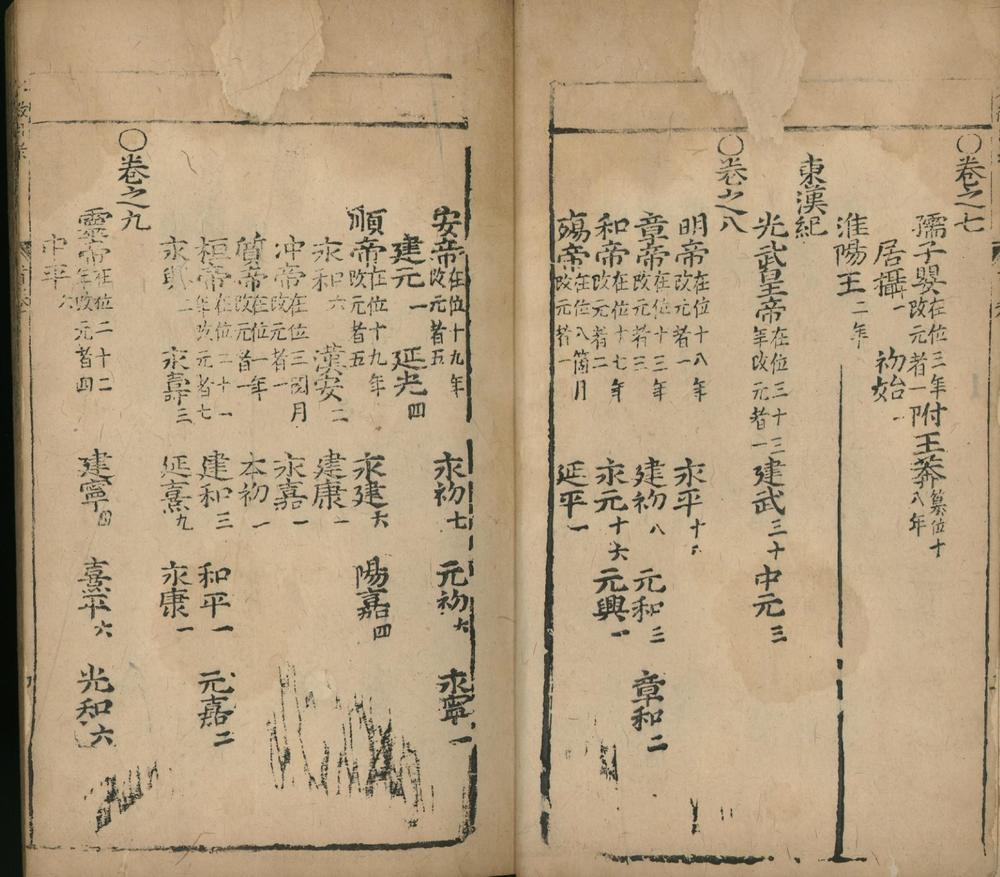 〇卷之七
孺子嬰在位三年改元者一附王莽篡位十八年
居攝一 初始一
淮陽王二年
東漢紀
光武皇帝在位三十三年改元者一建武三十 中元三
〇卷之八
明帝在位十八年改元者一 永平十
章帝在位十三年改元者三 建初八 元和三 章和二
和帝在位十七年改元者二 永元十六 元興一
殤帝在位八箇月改元者一 延平一
安帝在位十九年改元者五 永初七 元初六 永寧一
建元一 延光四
順帝在位十九年改元者五 永建六 陽嘉四
永和六 漢安二 建康一
冲帝在位三月改元者一 永嘉一
質帝在位一年改元者一 本初一
桓帝在位二十一年改元者七 建和三 和平一 元嘉二
永興二 永壽三 延熹九 永康一
〇卷之九
靈帝在位二十二年改元者四 建寧四 熹平六 光和六
中平六